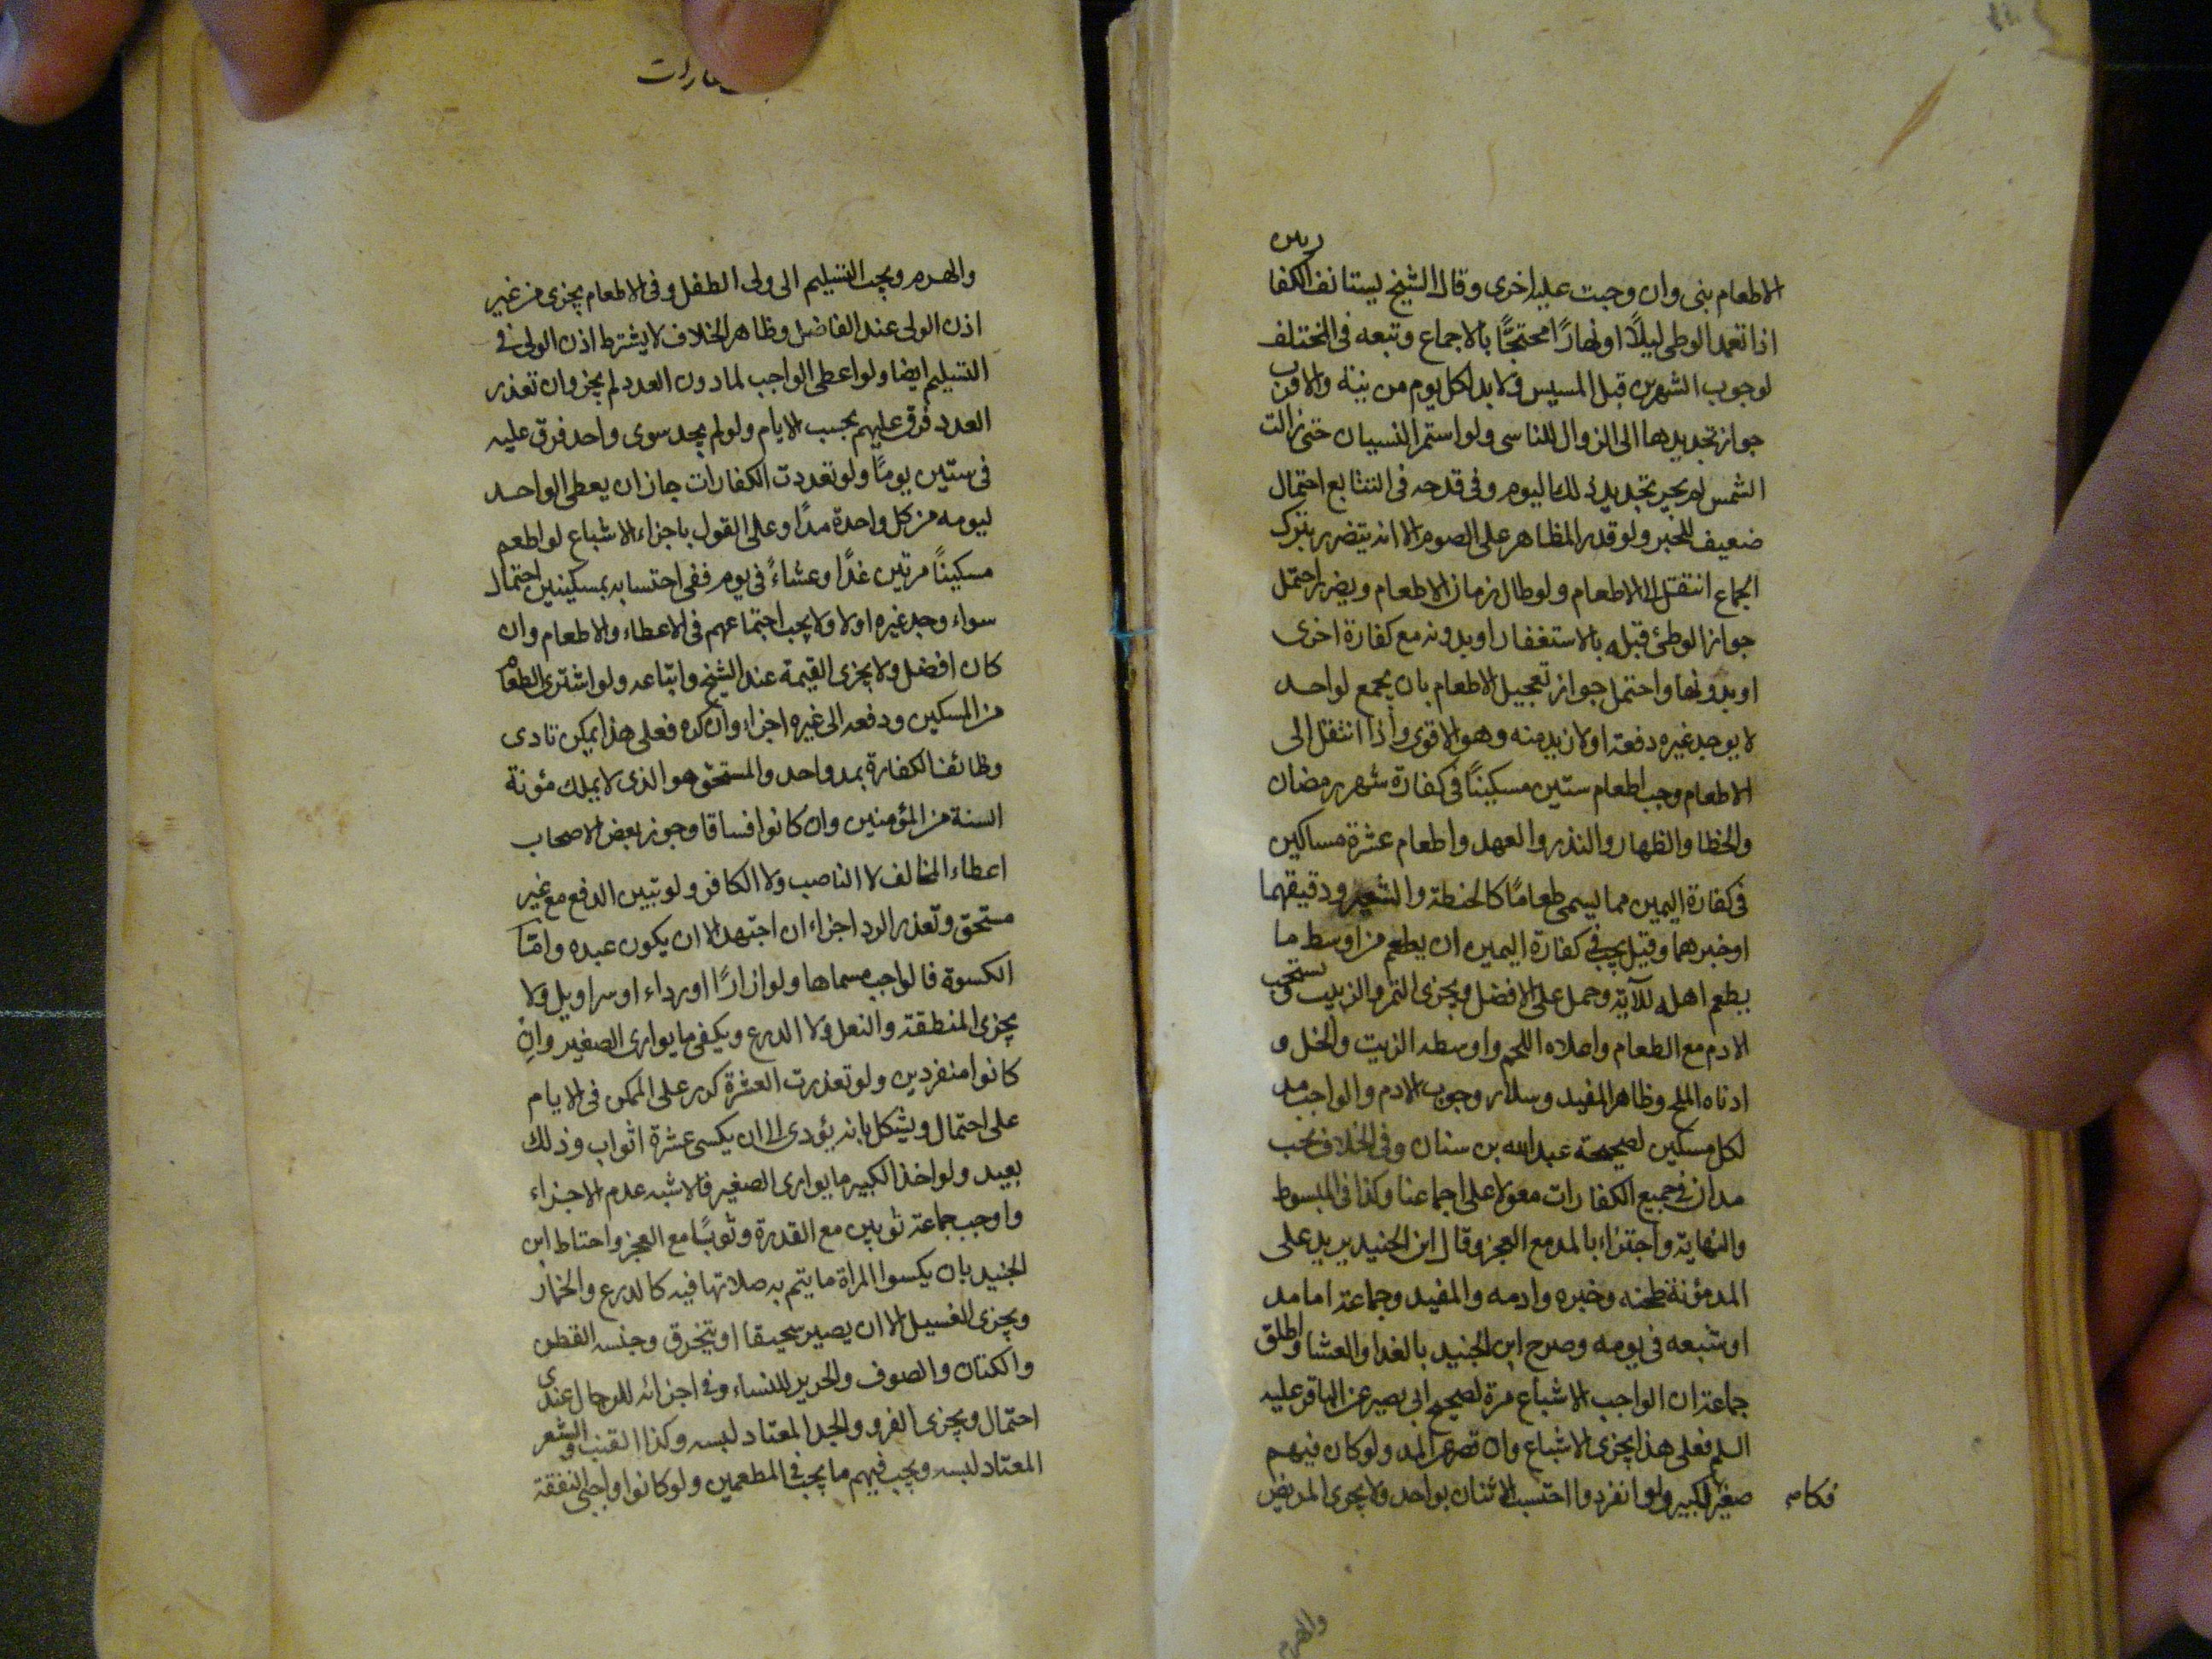 الاطعام بنى وان وجبت عليه اخرى وقال الشيخ يستانف الكفارتين
اذا تعمد الوطى ليلًا او نهارًا محتجًّا بالاجماع وتبعه فى المختلف
لوجوب الشهرين قبل المسيس ولا بد لكل يوم من نية والاقرب
جواز تجديدها الى الزوال للناسى ولو استمر النسيان حتى زالت
الشمس لم يجز تجديد ذلك اليوم وفى قدحه فى التتابع احتمال
ضعيف للخبر ولو قدر المظاهر على الصوم الا انه يتضرر بترك
الجماع انتقل الى الاطعام ولو طال زمان الاطعام ويضرر احتمل
جواز الوطئ قبله بالاستغفار او بدونه مع كفارة اخرى
او بدونها واحتمل جواز تعجيل الاطعام بان يجمع لواحد
لا يوجد غيره دفعة او لازيد منه وهو الاقوى واذا انتقل الى
الاطعام وجب اطعام ستين مسكينًا فى كفارة شهر رمضان
والخطا والظهار والنذر والعهد واطعام عشرة مساكين
فى كفارة اليمين مما يسمى طعامًا كالحنطة والشعير ودقيقهما
او خبزهما وقيل يجب فى كفارة اليمين ان يطعم من اوسط ما
يطعم اهله للآية وحمل على الافضل ويجزى التمر والزبيب ويستحب
الادم مع الطعام واعلاه اللحم واوسطه الزيت والخل و
ادناه الملح وظاهر المفيد وسلار وجوب الادم والواجب مد
لكل مسكين لصحيحة عبد الله بن سنان وفى الخلاف يجب
مدان فى جميع الكفارات معولا على اجماعنا وكذا فى المبسوط
والنهاية واجتزاء بالمد مع العجز وقال ابن الجنيد يزيد على
المد مؤنة طحنه وخبزه وادمه والمفيد وجماعة اما مد
او شبعه فى يومه وصرح ابن الجنيد بالغدا والعشا واطلق
جماعة ان الواجب الاشباع مرة لصحيح ابى بصير عن الباقر عليه
السلم فعلى هذا يجزى الاشباع وان قصر عن المد ولو كان فيهم
صغير فكالكبير ولو انفردوا احتسب الاثنان بواحد ولا يجزى المريض
والهرم
والهرم ويجب التسليم الى ولى الطفل وفى الاطعام يجزى من غير
اذن الولى عند الفاضل وظاهر الخلاف لا يشترط اذن الولى فى
التسليم ايضا ولو اعطى الواجب لما دون العدد لم يجز وان تعذر
العدد فرق عليهم بحسب الايام ولو لم يجد سوى واحد فرق عليه
فى ستين يومًا ولو تعددت الكفارات جاز ان يعطى الواحد
ليومه من كل واحدة مدًا وعلى القول باجزاء الاشباع لو اطعم
مسكينًا مرتين غدًا وعشاءً فى يوم ففى احتسابه بمسكينين احتمال
سواء وجد غيره او لا ولا يجب اجتماعهم فى الاعطاء والاطعام وان
كان افضل ولا يجزى القيمة عند الشيخ واتباعه ولو اشترى الطعام
من المسكين ودفعه الى غيره اجزاء وان كره فعلى هذا يمكن تادى
وظائف الكفارة بمد واحد والمستحق هو الذى لا يملك مؤنة
السنة من المؤمنين وان كانوا فساقا وجوز بعض الاصحاب
اعطاء المخالف لا الناصب ولا الكافر ولو تبين الدفع مع غير
مستحق وتعذر الرد اجزاء ان اجتهد الا ان يكون عبده وامّا
الكسوة فالواجب مسماها ولو ازارًا او رداء او سراويل ولا
يجزى المنطقة والنعل ولا الدرع ويكفى ما يوارى الصغير وان
كانوا منفردين ولو تعذرت العشرة كرر على الممكن فى الايام
على احتمال ويشكل بانه يؤدى الى ان يكسى عشرة اثواب وذلك
بعيد ولو اخذ الكبير ما يوارى الصغير فالاشبه عدم الاجزاء
واوجب جماعة ثوبين مع القدرة وثوبًا مع العجز واحتاط ابن
الجنيد بان يكسوا المراة ما يتم به صلاتها فيه كالدرع والخمار
ويجزى الغسيل الا ان يصير سحيقا او يتخرق وجنسه القطن
والكتان والصوف والحرير للنساء وفى اجزائه للرجال عندى
احتمال ويجزى الفرو والجلد المعتاد لبسه وكذا القنب والشعر
المعتاد لبسه ويجب فيهم ما يجب فى المطعمين ولو كانوا واجبى النفقة